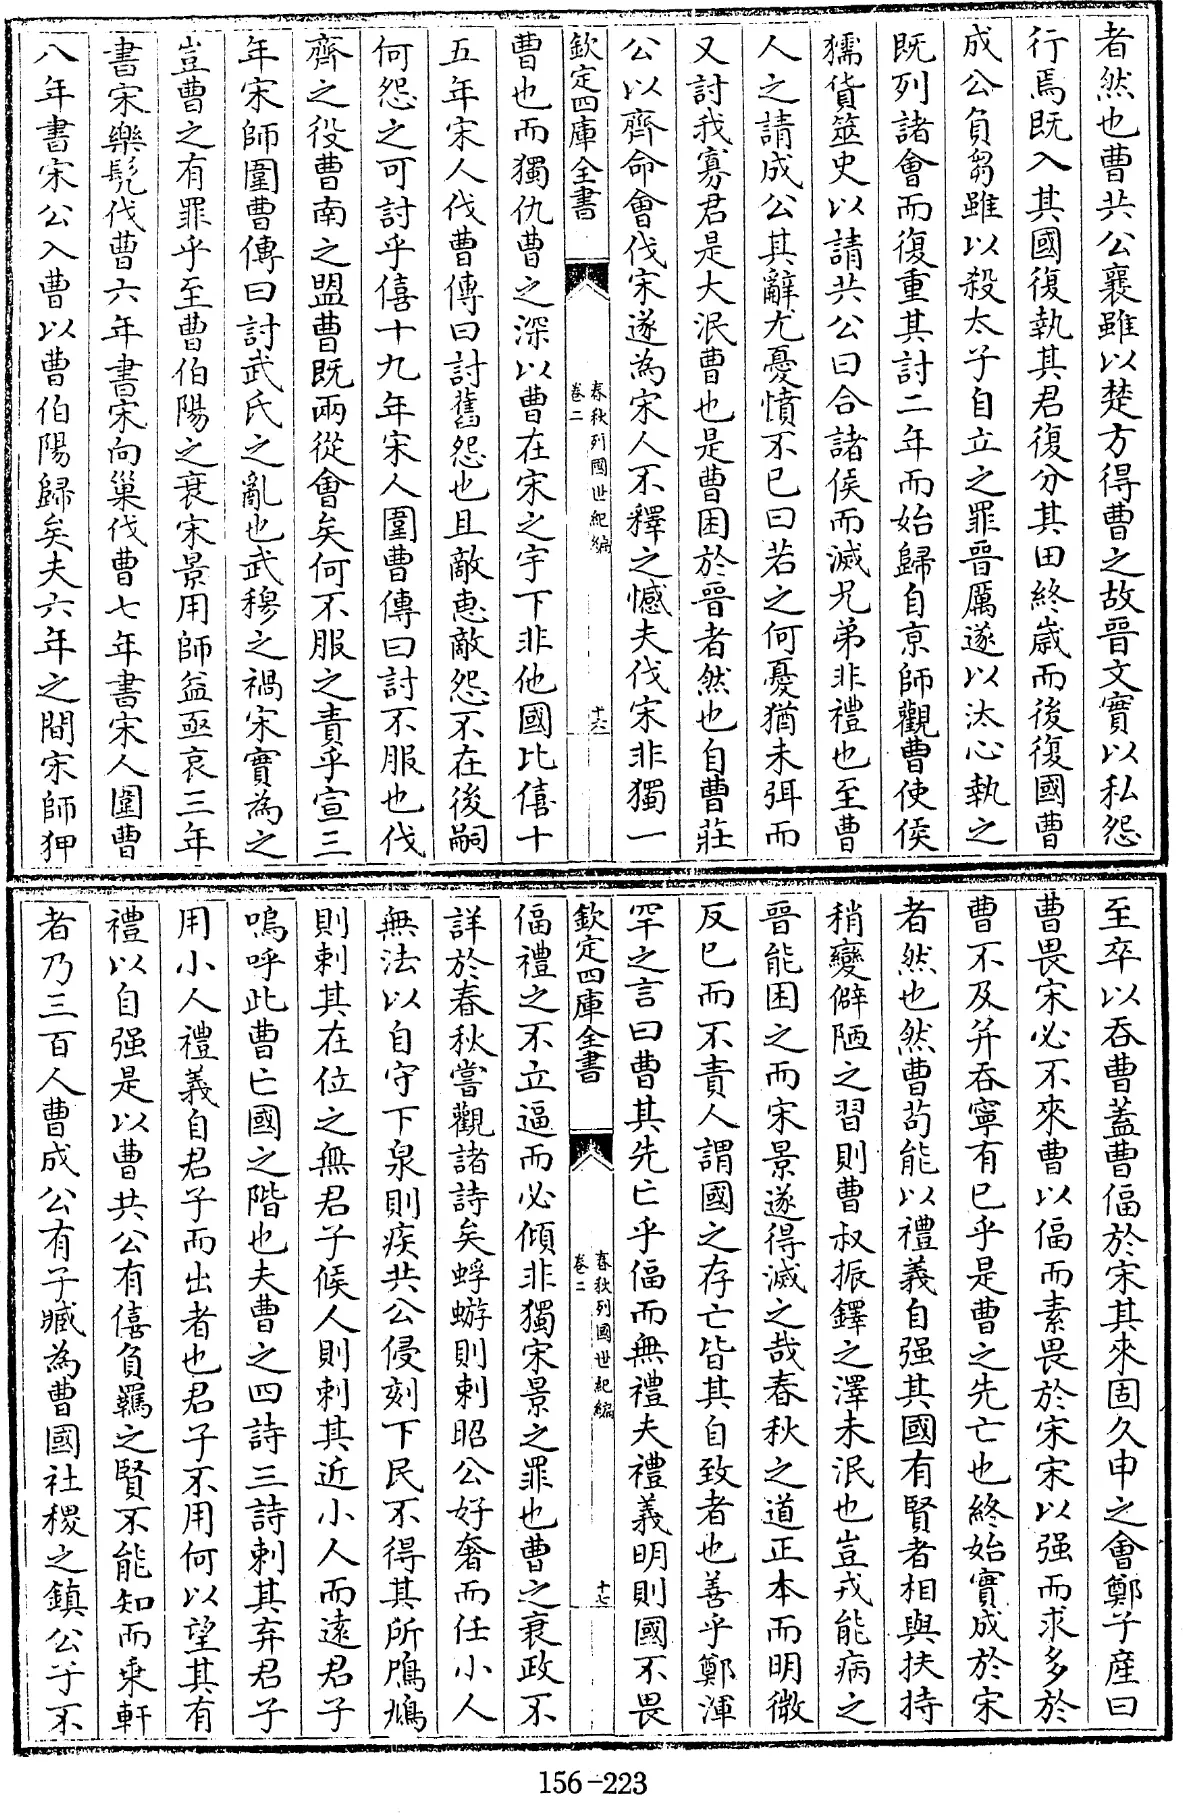 者然也曹共公襄雖以楚方得曹之故晉文實以私怨
行焉既入其國復執其君復分其田終歲而後復國曹
成公負芻雖以殺太子自立之罪晉厲遂以汰心執之
既列諸會而復重其討二年而始歸自京師觀曹使侯
獳貨筮史以請共公曰合諸侯而滅兄弟非禮也至曹
人之請成公其辭尤憂憤不已曰若之何憂猶未弭而
又討我寡君是大泯曹也是曹困於晉者然也自曹莊
公以齊命會伐宋遂為宋人不釋之憾夫伐宋非獨一
欽定四庫全書
春秋列國世紀編
卷二
十六
曹也而獨仇曹之深以曹在宋之宇下非他國比僖十
五年宋人伐曹傳曰討舊怨也且敵惠敵怨不在後嗣
何怨之可討乎僖十九年宋人圍曹傳曰討不服也伐
齊之役曹南之盟曹既兩從會矣何不服之責乎宣三
年宋師圍曹傳曰討武氏之亂也武穆之禍宋實為之
豈曹之有罪乎至曹伯陽之衰宋景用師益亟哀三年
書宋樂髡伐曹六年書宋向巢伐曹七年書宋人圍曹
八年書宋公入曹以曹伯陽歸矣夫六年之間宋師狎
至卒以吞曹蓋曹偪於宋其來固久申之會鄭子產曰
曹畏宋必不來曹以偪而素畏於宋宋以强而求多於
曹不及并吞寧有已乎是曹之先亡也終始實成於宋
者然也然曹茍能以禮義自强其國有賢者相與扶持
稍變僻陋之習則曹叔振鐸之澤未泯也豈戎能病之
晉能困之而宋景遂得滅之哉春秋之道正本而明微
反已而不責人謂國之存亡皆其自致者也善乎鄭渾
罕之言曰曹其先亡乎偪而無禮夫禮義明則國不畏
欽定四庫全書
春秋列國世紀編
卷二
十七
偪禮之不立逼而必傾非獨宋景之罪也曹之衰政不
詳於春秋嘗觀諸詩矣蜉蝣則刺昭公好奢而任小人
無法以自守下泉則疾共公侵刻下民不得其所鳲鳩
則刺其在位之無君子候人則刺其近小人而遠君子
嗚呼此曹亡國之階也夫曹之四詩三詩刺其弃君子
用小人禮義自君子而出者也君子不用何以望其有
禮以自强是以曹共公有僖負羈之賢不能知而乘軒
者乃三百人曹成公有子臧為曹國社稷之鎮公子不
156-223